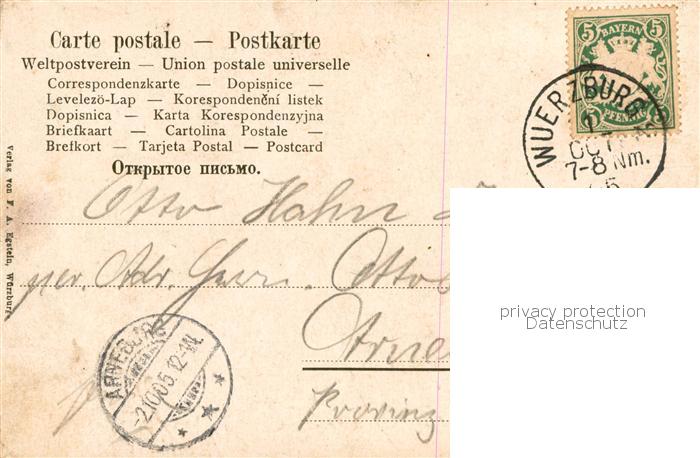 Carte postale — Postkarte
Weltpostverein — Union postale universelle
Correspondenzkarte — Dopisnice —
Levelezö-Lap — Korespondenční listek
Dopisnica — Karta Korespondenzyjna
Briefkaart — Cartolina Postale —
Brefkort — Tarjeta Postal — Postcard
Открытое письмо.
Verlag von F. A. Egstein, Würzburg
5 BAYERN 5
PFENNIG
WUERZBURG
OCT
7-8 Nm.
05
Otto Hahn
per Adr. Herrn Otto
Arne
Provinz
ARNEBURG
-2.10.05.12-1N.
privacy protection
Datenschutz